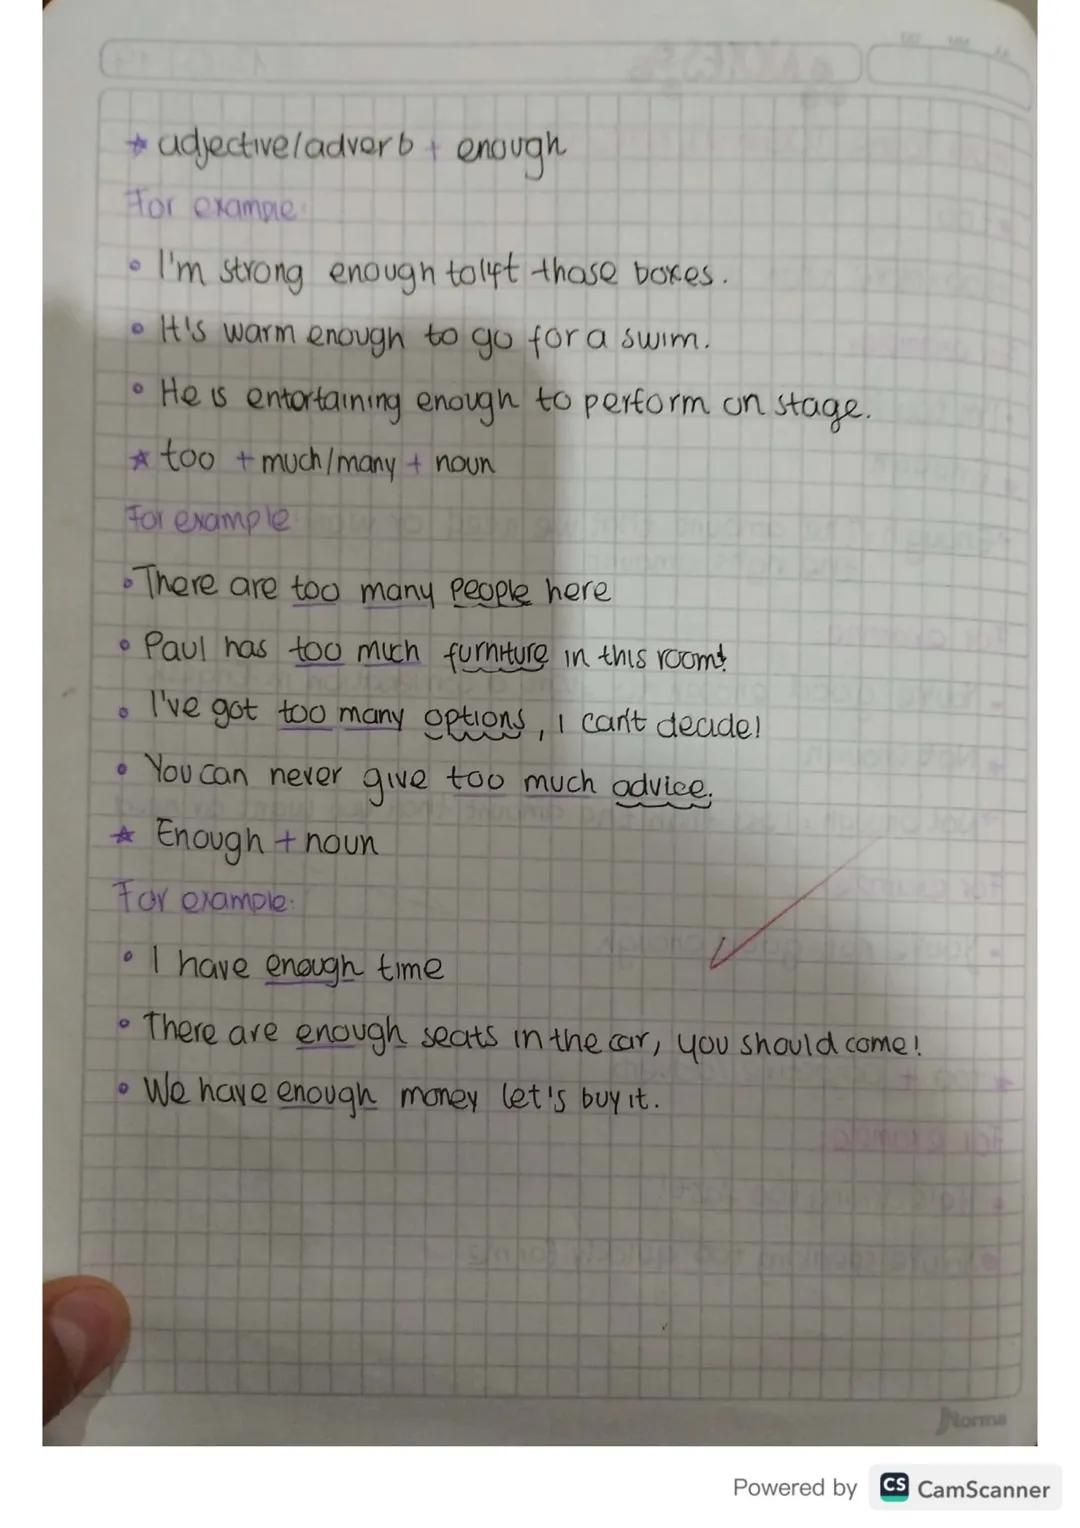 ★ adjective/adverb + enough
For example:
• I'm strong enough to lift those boxes.
• It's warm enough to go for a swim.
• He is entertaining enough to perform on stage.
★ too + much/many + noun
For example
• There are too many people here
• Paul has too much furniture in this room!
• I've got too many options, I can't decide!
• You can never give too much advice.
★ Enough + noun
For example:
• I have enough time
• There are enough seats in the car, you should come!
• We have enough money let's buy it.
Norma
Powered by CS CamScanner